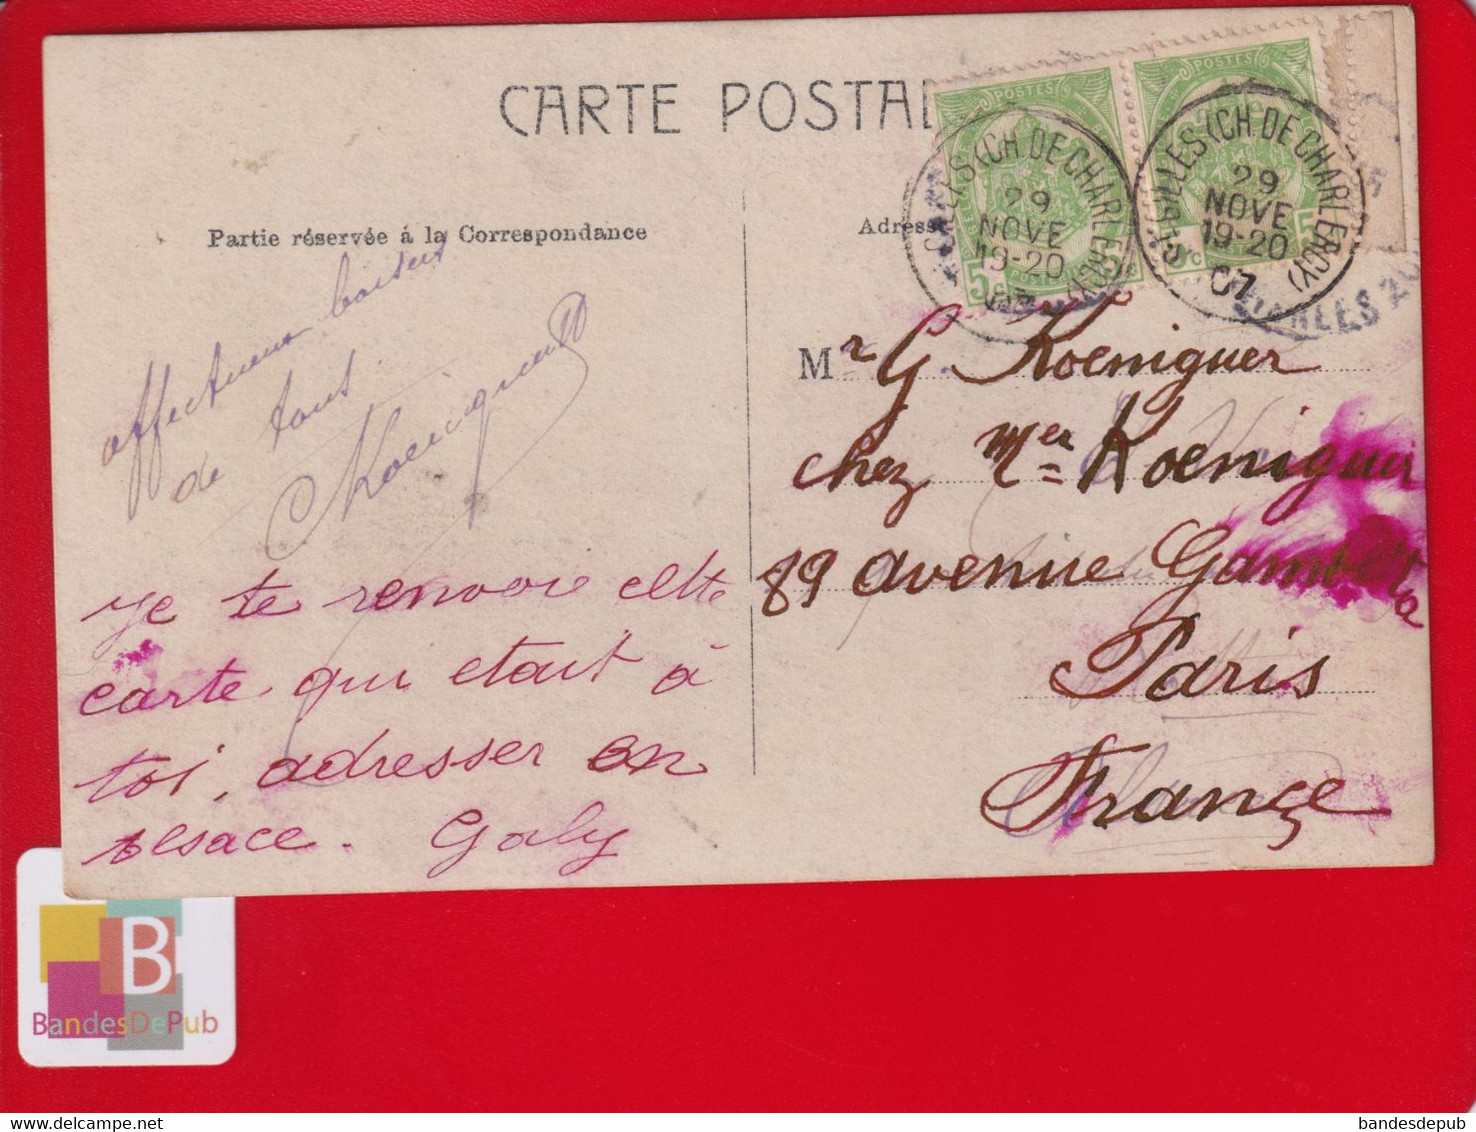 CARTE POSTA
POSTES
POSTES
ILLES (CH. DE CHARLERCY)
29
NOVE
19-20
07
GILLES (CH. DE CHARLERCY)
29
NOVE
19-20
07
5c
5
5c
5
Partie réservée à la Correspondance
Adress
affectueux baisers
de tous
Koeniguer
je te renvoie cette
carte qui etait à
toi, adresser en
alsace. Galy
Mr G Koeniguer
chez Mer Koeniguer
89 avenue Gambetta
Paris
France
B
BandesDePub
bandesdepub